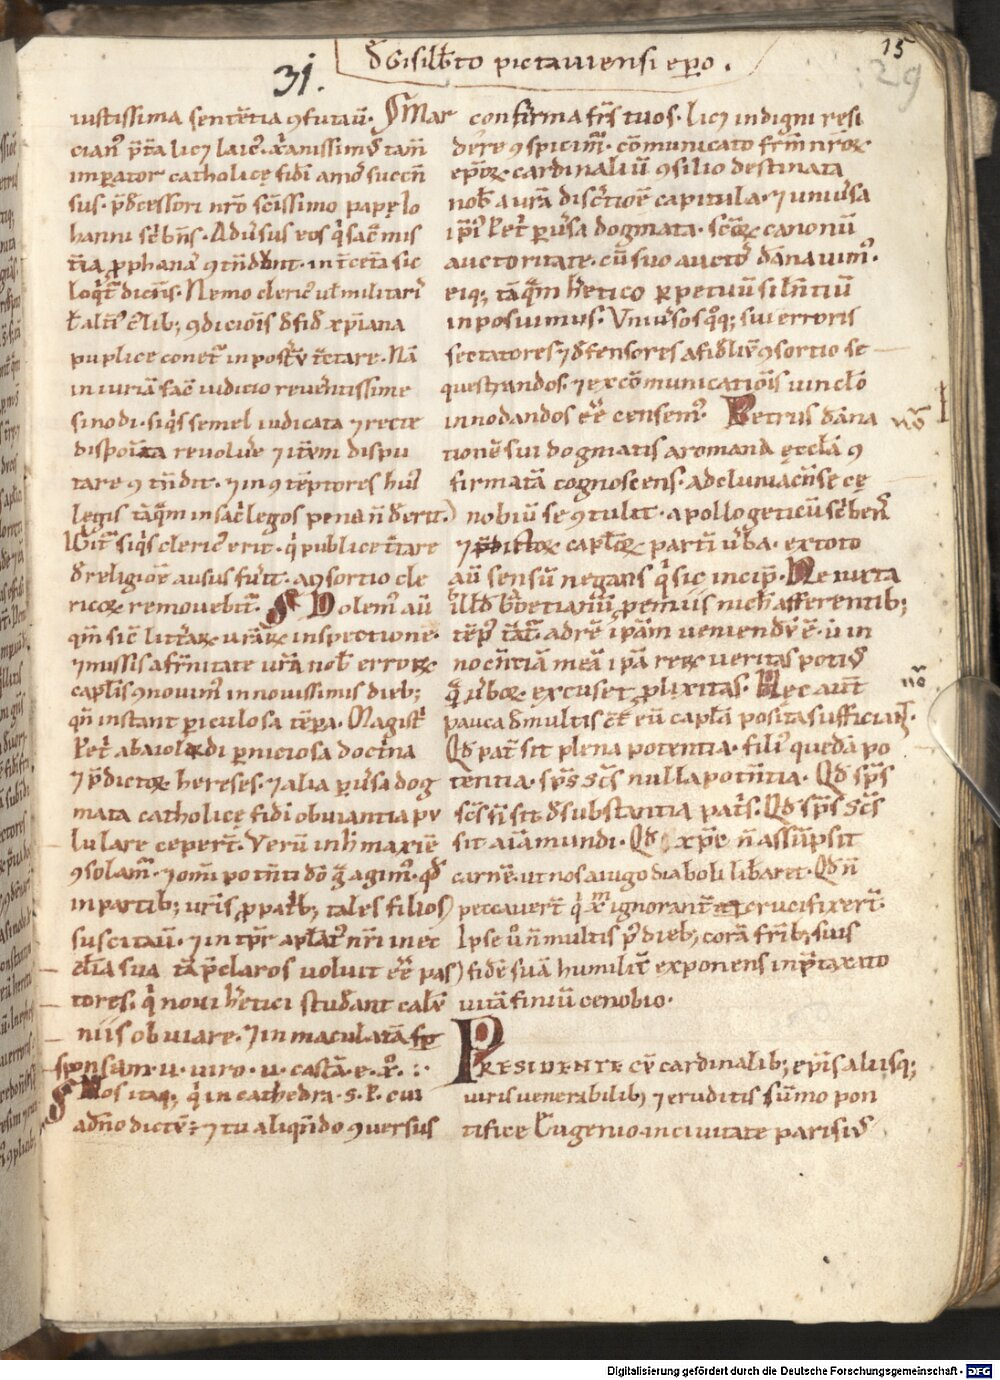 15
29
31.
đ Gisilb̄to pictauiensi ep̄o.
iustissima sentētia ꝯfutaū. Mar
cianꝰ p̄ta licꝫ laicꝰ. xp̄anissimꝰ tam̄
imꝑator catholicę fidei amore succen̄
sus. p̄dcessori nr̄o sc̄issimo papę Io
hanni sc̄ben̄s. Aduersus eos qi sac̄ mis
t̄ia ꝓphanare ꝯtendunt. int̄ cet̄a sic
loqit̄ dicen̄s. Nemo clericꝰ ut militaris
ł alt̄iꝰ ꝯdicionis đ fide xp̄iana
puplice conet̄ in post̄ū t̄ctare. Nā
iniuriā fac̄ iudicio reuerentissime
sinodi. siqis semel iudicata ⁊ recte
disposita reuoluere ⁊ itm̄ dispu
tare ꝯtendit. ⁊ in ꝯtēptores huiꝰ
legis tāqm̄ in sac̄legos pena n̄ deerit.
Igit̄ siqis clericꝰ erit. qi publice t̄tare
đ religione ausus fuerit. a ꝯsortio cle
ricoꝝ remouebit̄. Dolemꝰ aū
qm̄ sic̄ litteraꝝ ur̄aꝝ inspectione.
⁊ missis a frn̄itate ur̄a nob̄ erroꝝ
capl̄is ꝯnouimꝰ in nouissimis dieb;
qn̄ instant ꝑiculosa tēpora. Magistri
Petri abaiolardi ꝑniciosa doctrina
⁊ p̄dictoꝝ hereses. ⁊ alia ꝑuersa dog
mata catholicę fidei obuiantia pu
lulare ceperūt. Verū in h̄ maxime
ꝯsolamur. ⁊ om̄ipotenti đo gr̄as agimꝰ. qđ
in partib; ur̄is ꝓ patrib; tales filios
suscitaū. ⁊ in tp̄r apl̄atꝰ nr̄i in ec
cl̄ia sua tā p̄claros uoluit ee᷒ pas
tores. qi noui h̄etici studeant calū
niis obuiare. ⁊ inmaculatā
sponsam. u. uiro. u. castā. e. x̄.
Nos itaq; qi in cathedra. s. P. cui
a dn̄o dictū ē. ⁊ tu aliqn̄do ꝯuersus
confirma frēs tuos. licꝫ indigni resi
dere ꝯspicimur. cōmunicato frm̄ nr̄oꝝ
ep̄oꝝ cardinaliū ꝯsilio destinata
nob̄ a ur̄a discretione capitula. ⁊ uniuersa
ip̄iꝰ Petri ꝑuersa dogmata. sc̄oꝝ canonū
auctoritate. cū suo auctore dānauimꝰ.
eiq; tāqm̄ h̄etico ꝑpetuū silentiū
inposuimus. Vniuersos qoq; sui erroris
sectatores ⁊ đfensores a fideliū ꝯsortio se
questrandos. ⁊ excōmunicationis uinclo
innodandos ee᷒ censemꝰ. Petrus dāna
tionē sui dogmatis a romana ęccl̄a ꝯ
firmatā cognoscens. ad cluniacense ce
nobiū se ꝯtulit. apollogeticū sc̄bens
⁊ p̄dictoꝝ capl̄oꝝ partim uerba. ex toto
aū sensū negans qi sic incip̄. Ne iuxta
illđ boetianū ꝓemiis nich̄ afferentib;
tēpꝰ t̄at̄. ad rē ip̄am ueniendū ē. ut in
nocentiā meā ip̄a reꝝ ueritas potiꝰ
qā uerboꝝ excuset ꝓlixitas. Hec aut̄
pauca đ multis cōt̄ eū capl̄a posita sufficiant.
Qđ pat̄ sit plena potentia. filiꝰ quedā po
tentia. sp̄s sc̄s nulla potentia. Qđ sp̄s
sc̄s n̄ sit đ substantia pat̄s. Qđ sp̄s sc̄s
sit aīa mundi. Qđ xp̄c n̄ assūpsit
carnē. ut nos a iugo diaboli libaret. Qđ n̄
peccauerūt qi xm̄ ignorant̄ crucifixerūt.
Ipse ů n̄ multis p dieb; corā frib; suis
fidē suā humilit̄ exponens in p̄taxato
uitā finiuit cenobio.
Presidente cū cardinalib; ep̄is aliisq;
uiris uenerabilib; ⁊ eruditis sūmo pon
tifice Eugenio in ciuitate parisiꝰ
Digitalisierung gefördert durch die Deutsche Forschungsgemeinschaft - DFG